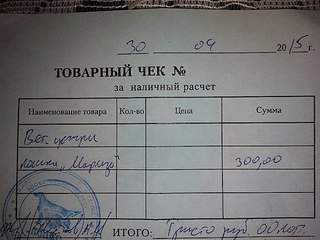 30 04 2015 г.
ТОВАРНЫЙ ЧЕК №
за наличный расчет
Наименование товара Кол-во Цена Сумма
Вет.
кошки „Маркиз" 300,00
ИТОГО: Триста руб. 00 коп.